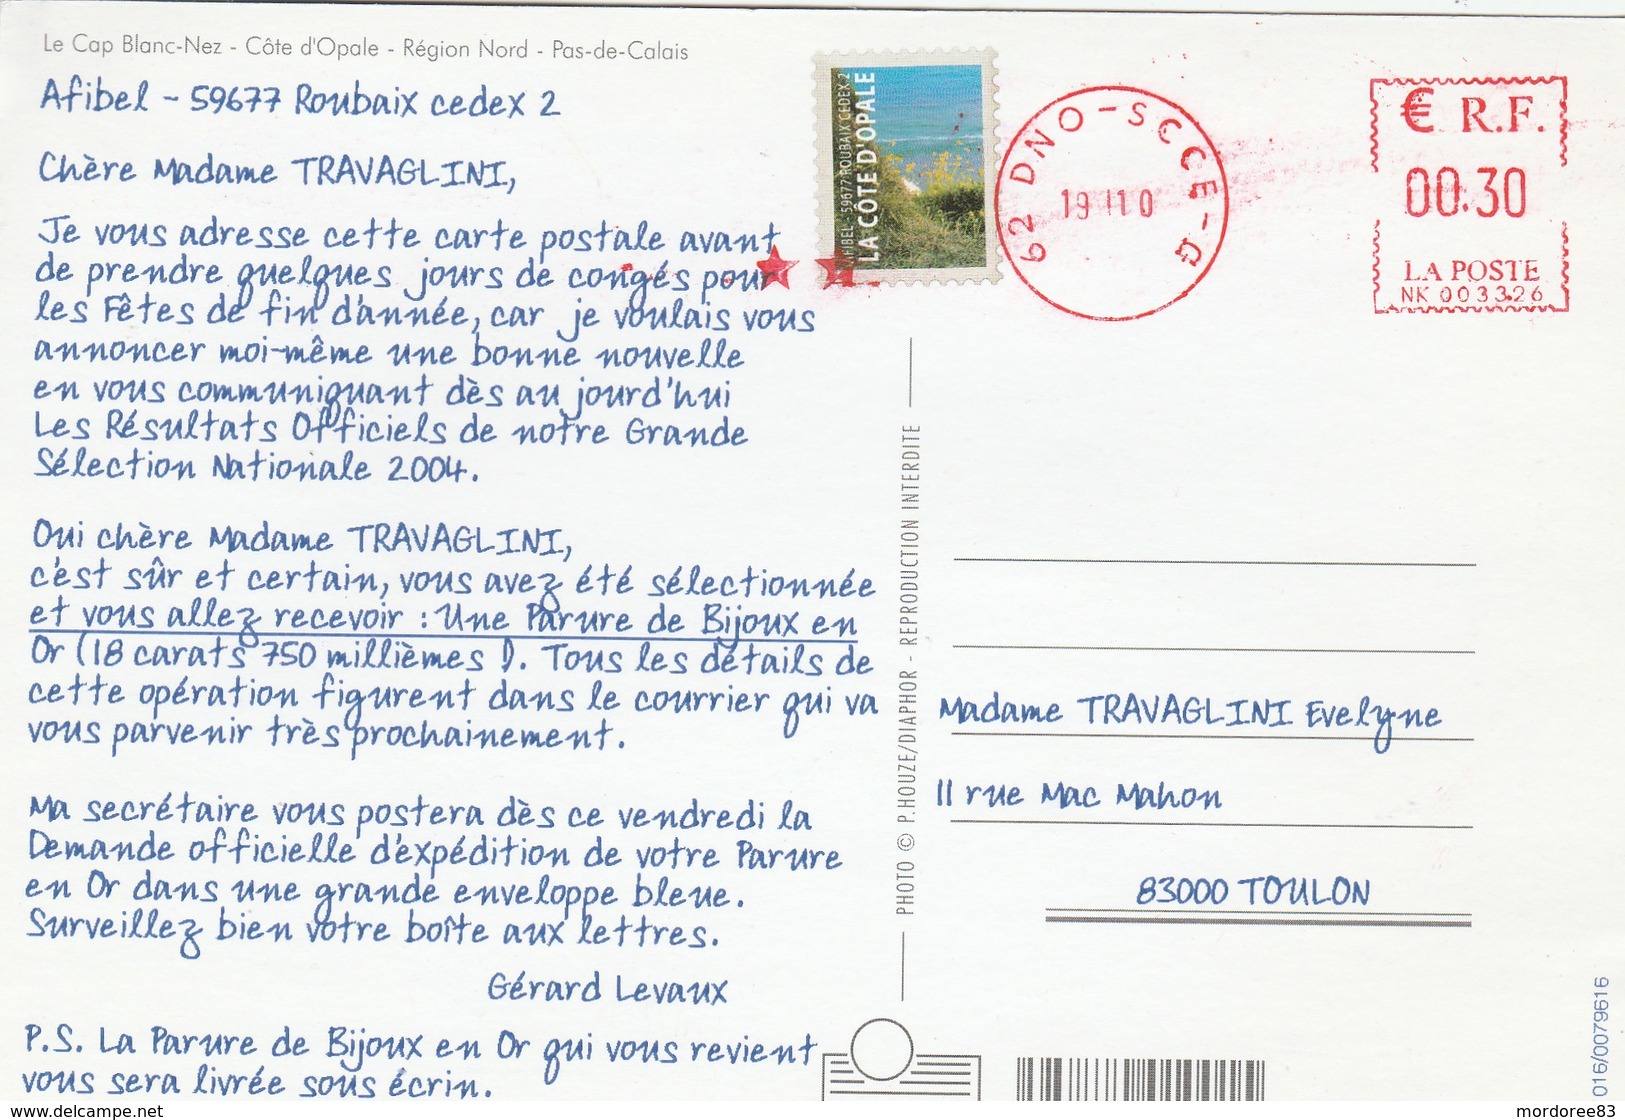 Le Cap Blanc-Nez - Côte d'Opale - Région Nord - Pas-de-Calais
Afibel - 59677 Roubaix cedex 2
Chère Madame TRAVAGLINI,
Je vous adresse cette carte postale avant
de prendre quelques jours de congés pour
les Fêtes de fin d'année, car je voulais vous
annoncer moi-même une bonne nouvelle
en vous communiquant dès au jourd'hui
Les Résultats Officiels de notre Grande
Sélection Nationale 2004.
Oui chère Madame TRAVAGLINI,
c'est sûr et certain, vous avez été sélectionnée
et vous allez recevoir : Une Parure de Bijoux en
Or (18 carats 750 millièmes !). Tous les détails de
cette opération figurent dans le courrier qui va
vous parvenir très prochainement.
Ma secrétaire vous postera dès ce vendredi la
Demande officielle d'expédition de votre Parure
en Or dans une grande enveloppe bleue.
Surveillez bien votre boîte aux lettres.
Gérard Levaux
P.S. La Parure de Bijoux en Or qui vous revient
vous sera livrée sous écrin.
AFIBEL - 59677 ROUBAIX CEDEX 2
LA CÔTE D'OPALE
62 DNO-SCCE-G
19 11 0
€ R.F.
00.30
LA POSTE
NK 003326
PHOTO © P.HOUZE/DIAPHOR - REPRODUCTION INTERDITE
Madame TRAVAGLINI Evelyne
11 rue Mac Mahon
83000 TOULON
016/0079616
www.delcampe.net
mordoree83